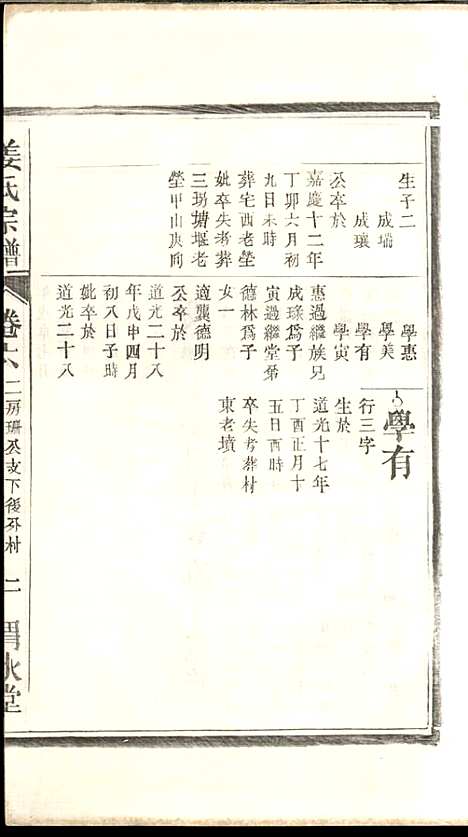 生子二
成瑞
成瓌
公卒於
嘉慶十二年
丁卯六月初
九日未時
葬宅西老塋
妣卒失考葬
三塲塘堰老
塋甲山庚向
學惠
學美
學有
學寅
惠過繼族兄
成琭爲子
寅過繼堂弟
德林爲子
女一
適龔德明
公卒於
道光二十八
年戊申四月
初八日子時
妣卒於
道光二十八
學有
行三字
生於
道光十七年
丁酉正月十
五日酉時
卒失考葬村
東老墳
姜氏宗譜
卷十六
二房珊公支下後外村
二
渭水堂